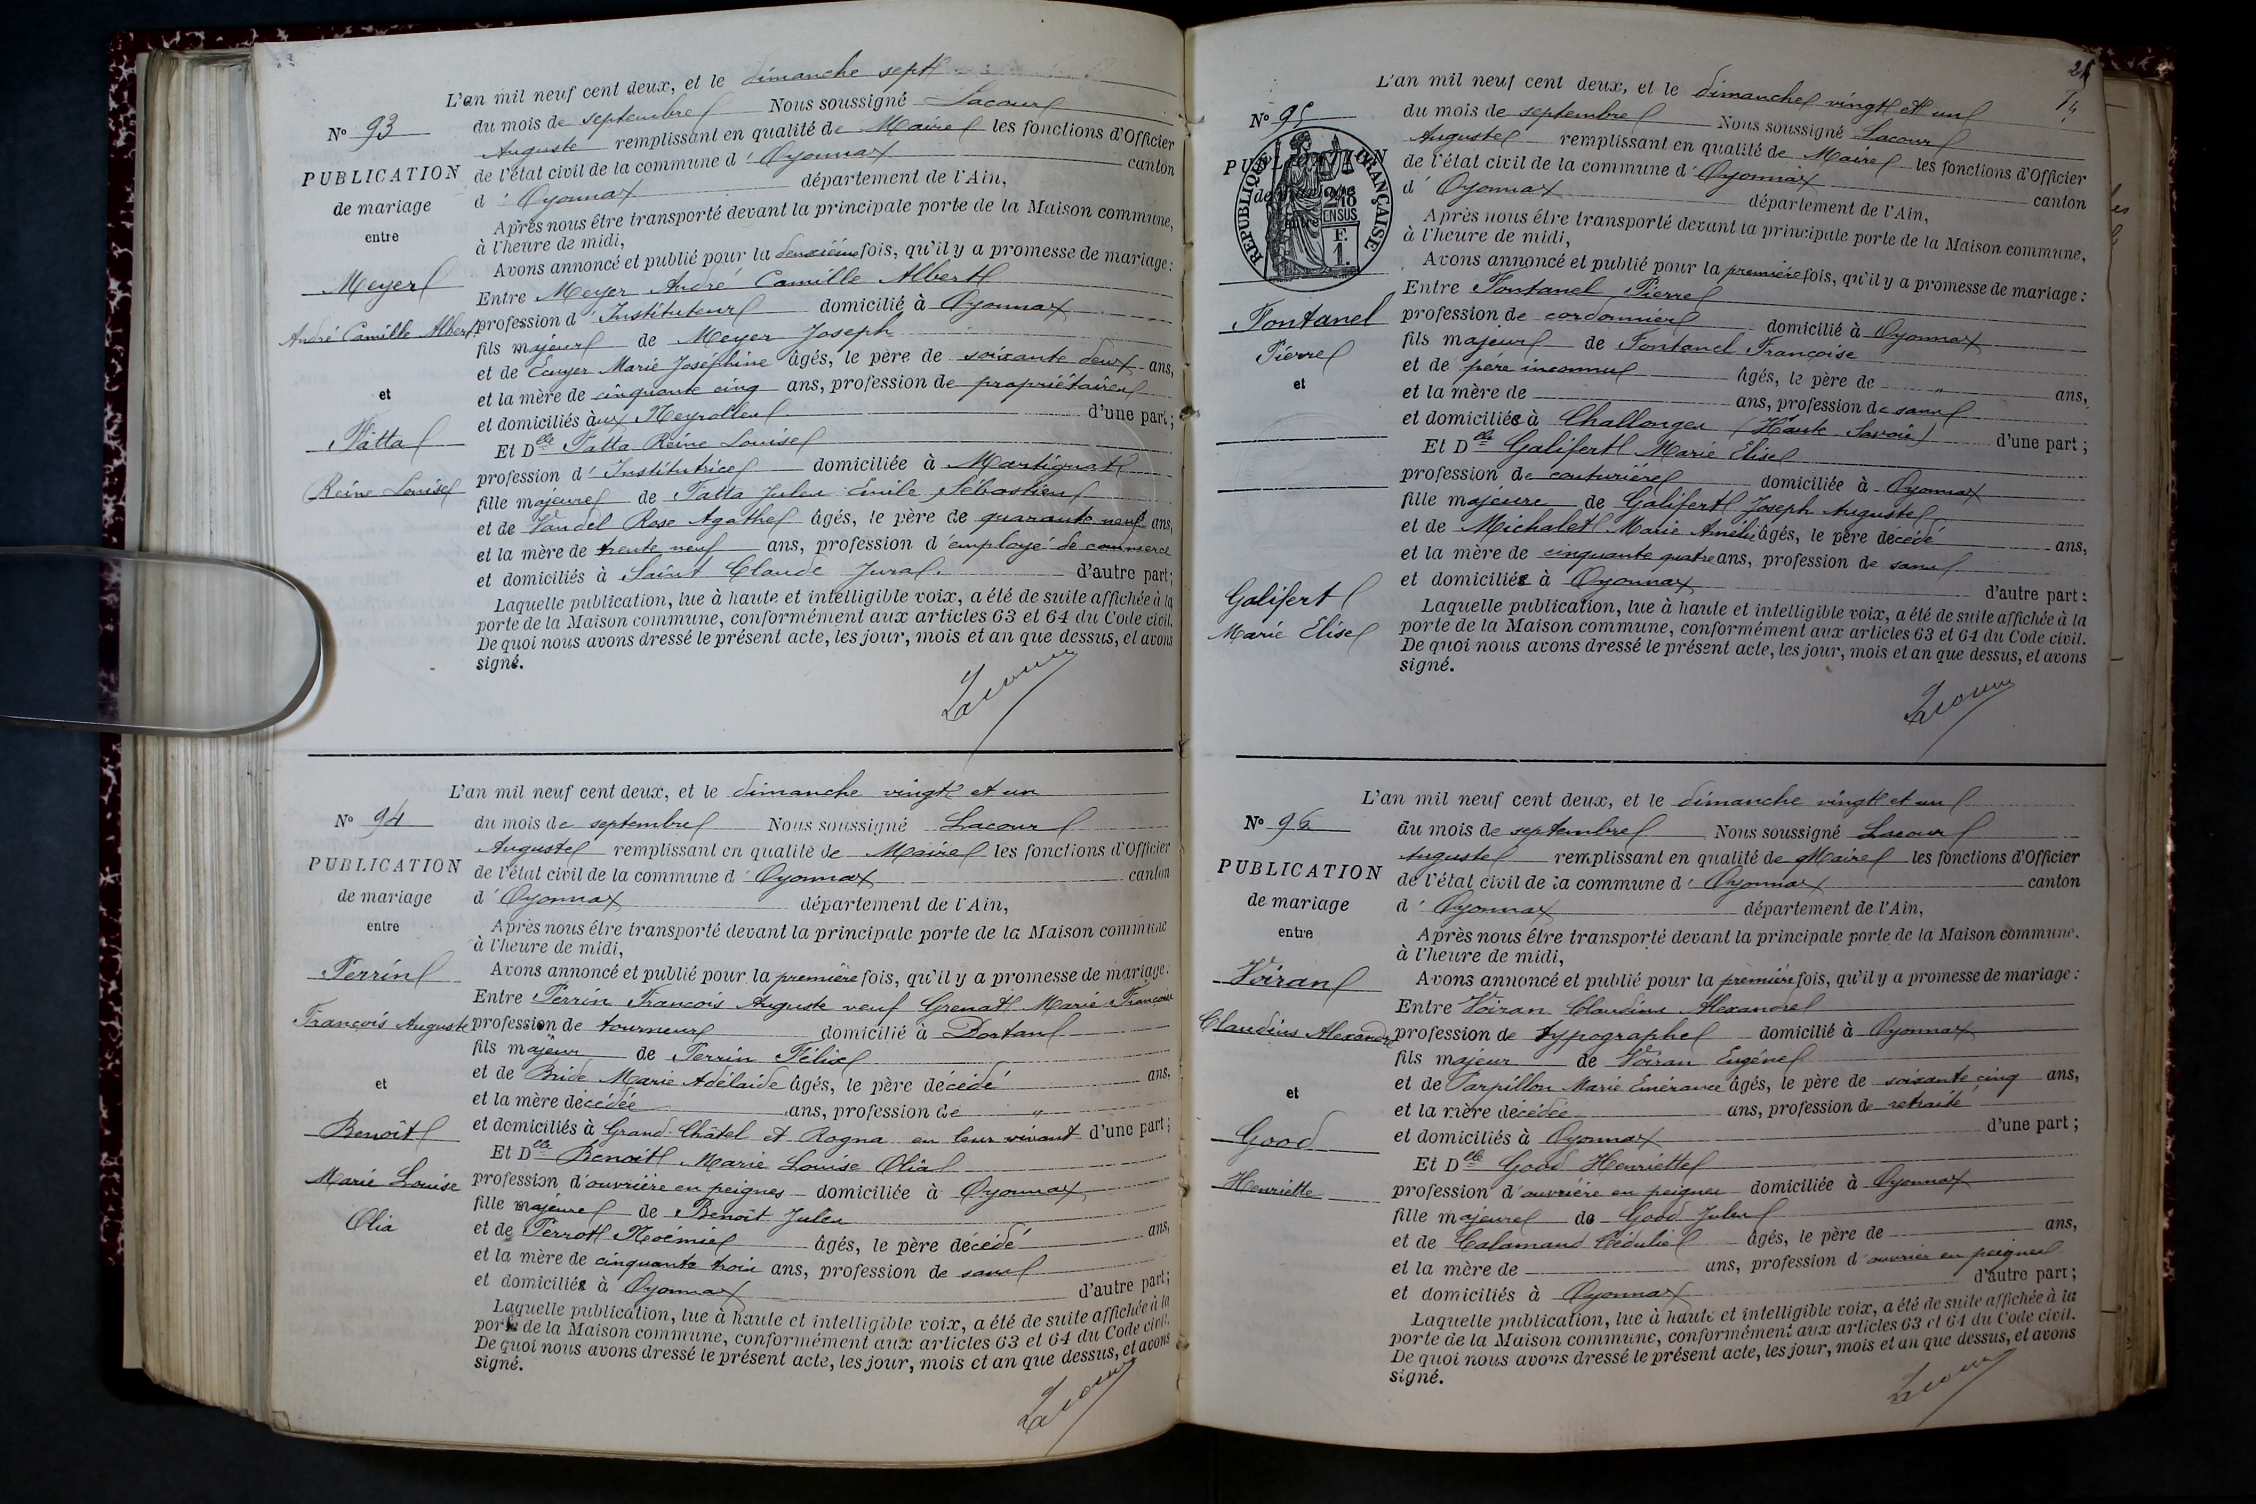 L'an mil neuf cent deux, et le dimanche sept
N° 93
du mois de septembre Nous soussigné Lacour
Auguste remplissant en qualité de Maire les fonctions d'Officier
PUBLICATION
de mariage
entre
de l'état civil de la commune d' Oyonnax canton
d' Oyonnax département de l'Ain,
Après nous être transporté devant la principale porte de la Maison commune,
à l'heure de midi,
Avons annoncé et publié pour la deuxième fois, qu'il y a promesse de mariage:
Meyer
André Camille Albert
Entre Meyer André Camille Albert
profession d' Instituteur domicilié à Oyonnax
fils majeur de Meyer Joseph
et de Ecuyer Marie Joséphine âgés, le père de soixante deux ans,
et
et la mère de cinquante cinq ans, profession de propriétaires
et domiciliés aux Neyrolles d'une part;
Tatta
Reine Louise
Et Delle Tatta Reine Louise
profession d' Institutrice domiciliée à Martignat
fille majeure de Tatta Jules Emile Sébastien
et de Vandel Rose Agathe âgés, le père de quarante neuf ans,
et la mère de trente neuf ans, profession d'employé de commerce
et domiciliés à Saint Claude Jura. d'autre part;
Laquelle publication, lue à haute et intelligible voix, a été de suite affichée à la
porte de la Maison commune, conformément aux articles 63 et 64 du Code civil.
De quoi nous avons dressé le présent acte, les jour, mois et an que dessus, et avons
signé.
Lacour
L'an mil neuf cent deux, et le dimanche vingt et un
N° 94
du mois de septembre Nous soussigné Lacour
Auguste remplissant en qualité de Maire les fonctions d'Officier
PUBLICATION
de mariage
entre
de l'état civil de la commune d' Oyonnax canton
d' Oyonnax département de l'Ain,
Après nous être transporté devant la principale porte de la Maison commune
à l'heure de midi,
Avons annoncé et publié pour la première fois, qu'il y a promesse de mariage:
Perrin
François Auguste
Entre Perrin François Auguste veuf Grenat Marie Françoise
profession de tourneur domicilié à Dortan
fils majeur de Perrin Félix
et de Bride Marie Adélaide âgés, le père décédé ans,
et
et la mère décédée ans, profession de "
et domiciliés à Grand-Châtel et Rogna en leur vivant d'une part;
Benoît
Marie Louise
Olia
Et Delle Benoit Marie Louise Olia
profession d'ouvrière en peignes domiciliée à Oyonnax
fille majeure de Benoit Jules
et de Perrot Noémie âgés, le père décédé ans,
et la mère de cinquante trois ans, profession de sans
et domiciliée à Oyonnax d'autre part;
Laquelle publication, lue à haute et intelligible voix, a été de suite affichée à la
porte de la Maison commune, conformément aux articles 63 et 64 du Code civil.
De quoi nous avons dressé le présent acte, les jour, mois et an que dessus, et avons
signé.
Lacour
L'an mil neuf cent deux, et le dimanche vingt et un
N° 95
du mois de septembre Nous soussigné Lacour
Auguste remplissant en qualité de Maire les fonctions d'Officier
PUBLICATION
REPUBLIQUE FRANÇAISE
2/10
EN SUS
F.
1.
de l'état civil de la commune d' Oyonnax canton
d' Oyonnax département de l'Ain,
Après nous être transporté devant la principale porte de la Maison commune,
à l'heure de midi,
Avons annoncé et publié pour la première fois, qu'il y a promesse de mariage:
Fontanel
Pierre
et
Entre Fontanel Pierre
profession de cordonnier domicilié à Oyonnax
fils majeur de Fontanel Françoise
et de père inconnu âgés, le père de " ans,
et la mère de ans, profession de sans
et domiciliée à Challonges (Haute Savoie) d'une part;
Et Delle Galifert Marie Elise
profession de couturière domiciliée à Oyonnax
fille majeure de Galifert Joseph Auguste
et de Michalet Marie Amélie âgés, le père décédé ans,
et la mère de cinquante quatre ans, profession de sans
et domiciliée à Oyonnax d'autre part:
Galifert
Marie Elise
Laquelle publication, lue à haute et intelligible voix, a été de suite affichée à la
porte de la Maison commune, conformément aux articles 63 et 64 du Code civil.
De quoi nous avons dressé le présent acte, les jour, mois et an que dessus, et avons
signé.
Lacour
L'an mil neuf cent deux, et le dimanche vingt et un
N° 96
du mois de septembre Nous soussigné Lacour
Auguste remplissant en qualité de Maire les fonctions d'Officier
PUBLICATION
de mariage
entre
de l'état civil de la commune d' Oyonnax canton
d' Oyonnax département de l'Ain,
Après nous être transporté devant la principale porte de la Maison commune.
à l'heure de midi,
Avons annoncé et publié pour la première fois, qu'il y a promesse de mariage:
Voiran
Claudius Alexandre
Entre Voiran Claudius Alexandre
profession de typographe domicilié à Oyonnax
fils majeur de Voiran Eugène
et de Parpillon Marie Emérance âgés, le père de soixante cinq ans,
et
et la mère décédée ans, profession de retraité
et domiciliés à Oyonnax d'une part;
Good
Henriette
Et Delle Good Henriette
profession d'ouvrière en peignes domiciliée à Oyonnax
fille majeure de Good Jules
et de Calamand Cédulie âgés, le père de ans,
et la mère de ans, profession d'ouvrier en peignes
et domiciliés à Oyonnax d'autre part;
Laquelle publication, lue à haute et intelligible voix, a été de suite affichée à la
porte de la Maison commune, conformément aux articles 63 et 64 du Code civil.
De quoi nous avons dressé le présent acte, les jour, mois et an que dessus, et avons
signé.
Lacour